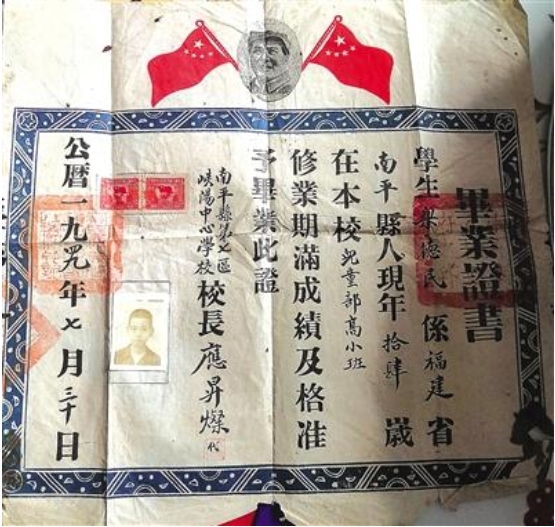 畢業證書
學生德民係福建省
南平縣人現年拾肆歲
在本校兒童部高小班
修業期滿成績及格准
予畢業此證
南平縣第七區
峽陽中心學校
校長應昇燦代
公曆一九年七月三十日